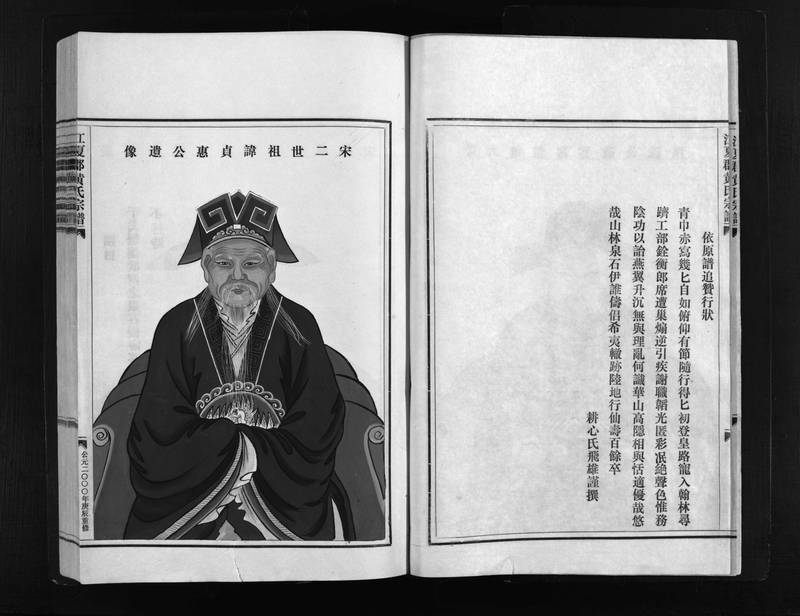 依原譜追贊行狀
青巾赤寫幾匕自如俯仰有節隨行得匕初登皇路寵入翰林尋
躋工部銓衡郎席遭巢煽逆引疾謝職韜光匿彩冺絶聲色惟務
陰功以詒燕翼升沉無與理亂何識華山高隱相與恬適優哉悠
哉山林泉石伊誰儔侣希夷轍跡陸地行仙壽百餘卒
耕心氏飛雄謹撰
宋二世祖諱貞惠公遺像
江夏郡黃氏宗譜
公元二〇〇〇年庚辰重修